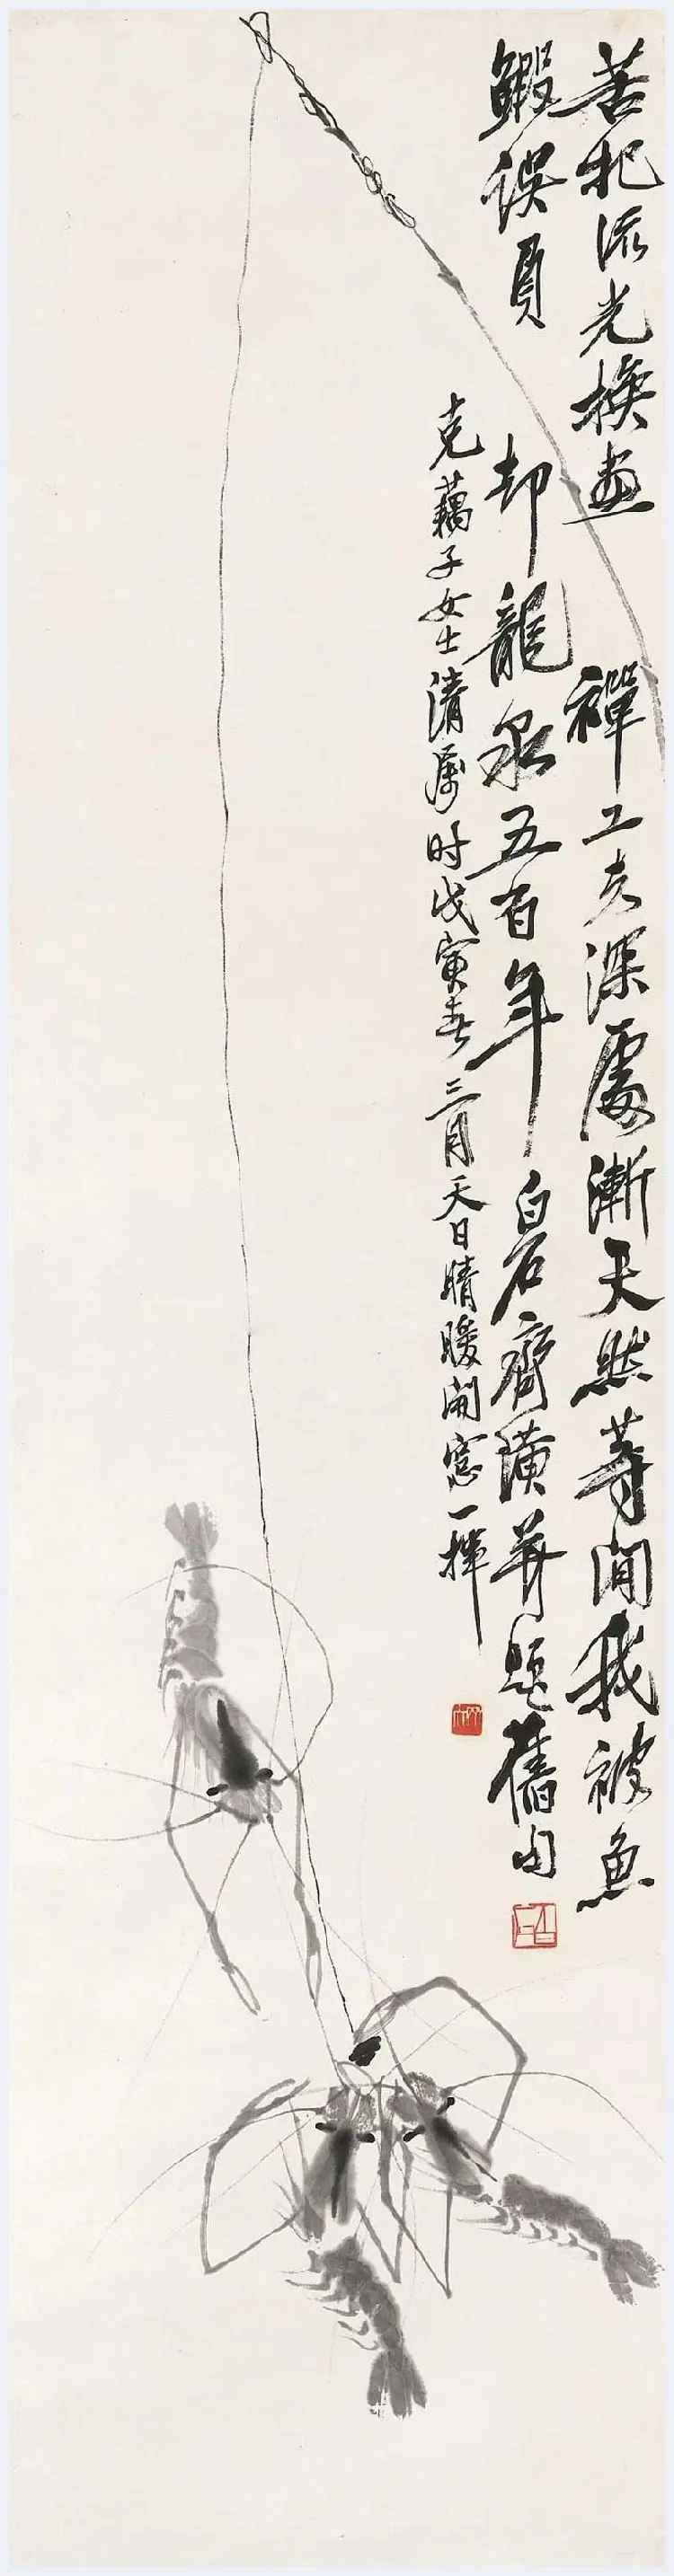 苦把流光换画禅工夫深處漸天然等閒我被魚
鰕误負却龍泉五百年白石齊璜并题舊句
克藕子女士清屬时戊寅春三月天日晴暖開窗一揮